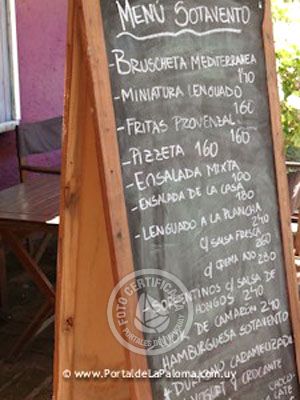 MENÚ SOTAVENTO
- BRUSCHETA MEDITERRANEA
170
- MINIATURA LENGUADO
160
- FRITAS PROVENZAL
160
- PIZZETA 160
- ENSALADA MIXTA
100
- ENSALADA DE LA CASA
180
- LENGUADO A LA PLANCHA
240
C/ SALSA FRESCA
260
C/ CREMA AJO 280
SORRENTINOS C/ SALSA DE
HONGOS 240
DE CAMARÓN
HAMBURGUESA SOTAVENTO
DURAZNO CARAMELIZADA
YOGURT Y CROCANTE
CHOCO
FOTO CERTIFICADA
PORTALES DE URUGUAY
© www.PortaldeLaPaloma.com.uy